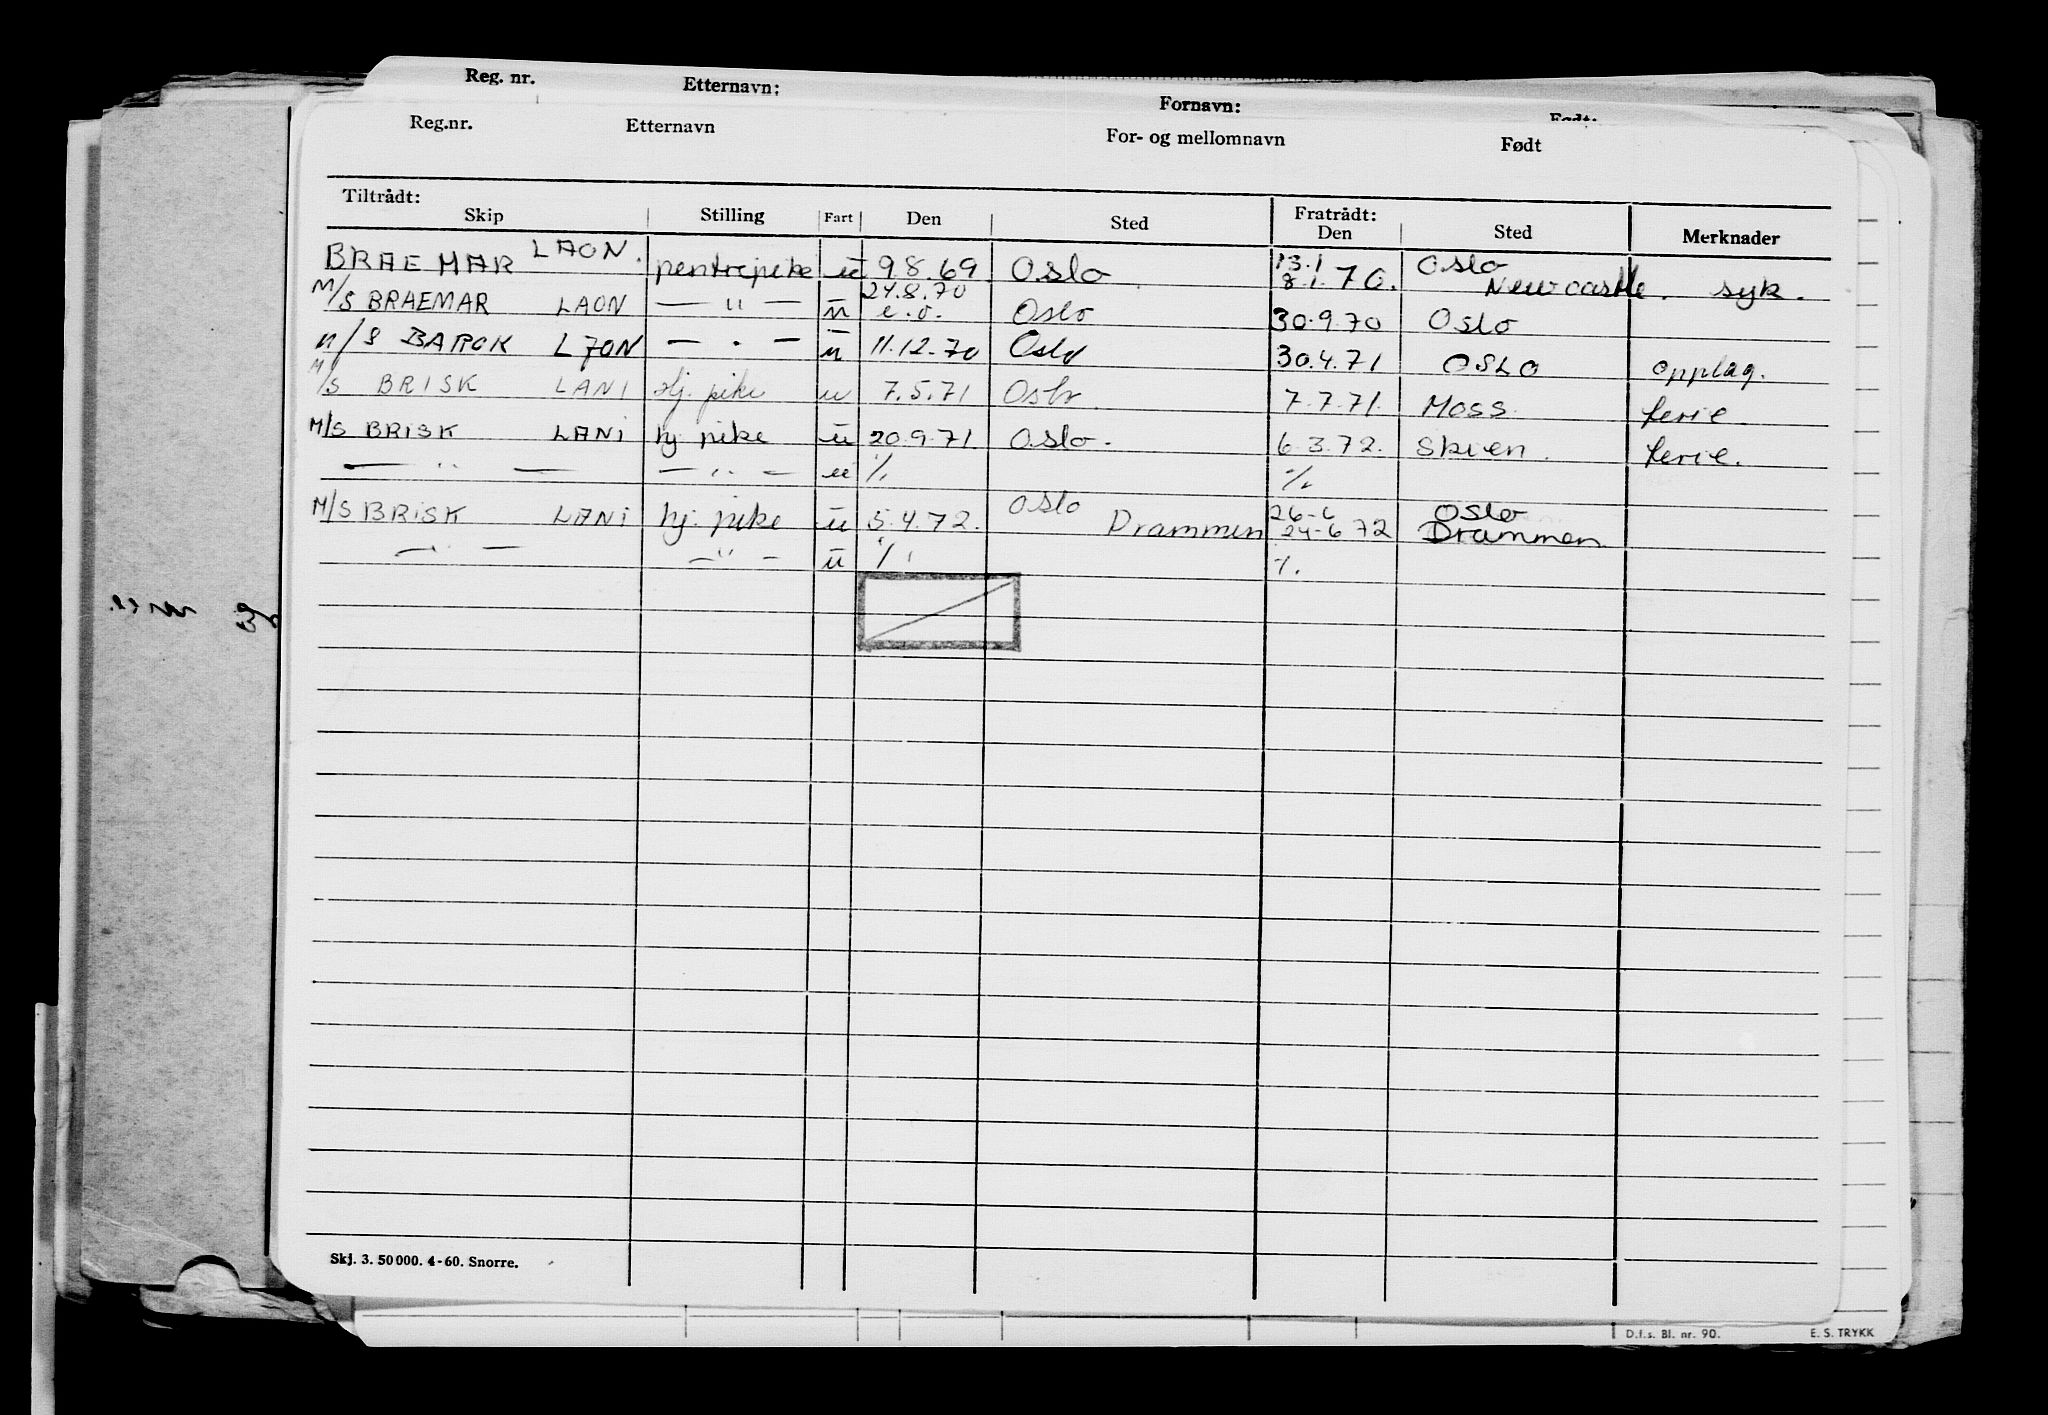 Reg. nr. Etternavn: Fornavn: Født:
Reg.nr. Etternavn For- og mellomnavn Født
Tiltrådt: Fratrådt:
Skip Stilling Fart Den Sted Den Sted Merknader
BRAEMAR LAON. pentrepike u 9.8.69 Oslo 13.1 8.1.70. Oslo Newcastle. syk.
M/S BRAEMAR LAON — " — u 24.8.70 e.o. Oslo 30.9.70 Oslo
M/S BAROK LJON — " — u 11.12.70 Oslo 30.4.71 OSLO opplag.
M/S BRISK LANI hj. pike u 7.5.71 Oslo 7.7.71. Moss. ferie.
M/S BRISK LANI hj. pike u 20.9.71 Oslo. 6.3.72. Skien. ferie.
— " — — " — u %. %.
M/S BRISK LANI hj. pike u 5.4.72. Oslo Drammen 26-6 24-6 72 Oslo Drammen
— " — — " — u %. %.
Skj. 3. 50 000. 4-60. Snorre.
D.f.s. Bl. nr. 90. E. S. TRYKK